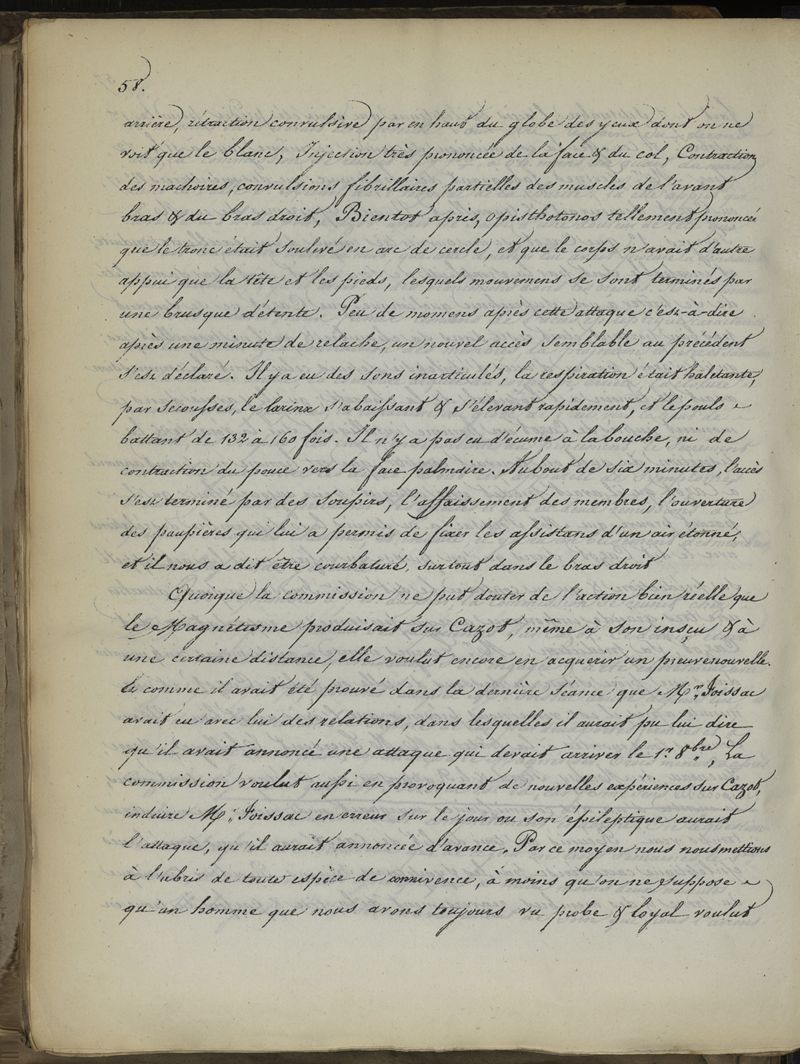 58.
arrière, rétraction convulsive par en haut du globe des yeux dont on ne
voit que le blanc, Injection très prononcée de la face & du col, Contraction
des machoires, convulsions fibrillaires partielles des muscles de l'avant
bras & du bras droit, Bientot après, opisthotonos tellement prononcé
que le tronc était soulevé en arc de cercle, et que le corps n'avait d'autre
appui que la tête et les pieds, lesquels mouvemens se sont terminés par
une brusque détente. Peu de momens après cette attaque c'est-à-dire
après une minute de relache, un nouvel accès semblable au précédent
s'est déclaré. Il y a eu des sons inarticulés, la respiration était haletante,
par secousses, le larinx s'abaissant & s'élevant rapidement, et le pouls
battant de 132 à 160 fois. Il n'y a pas eu d'écume à la bouche, ni de
contraction du pouce vers la face palmaire. Au bout de six minutes, l'accès
s'est terminé par des soupirs, l'affaissement des membres, l'ouverture
des paupières qui lui a permis de fixer les assistans d'un air étonné,
et il nous a dit être courbaturé, surtout dans le bras droit
Quoique la commission ne put douter de l'action bien réelle que
le Magnétisme produisait sur Cazot, même à son insçu & à
une certaine distance, elle voulut encore en acquerir un preuve nouvelle.
Et comme il avait été prouvé dans la dernière séance que Mr. Foissac
avait eu avec lui des relations, dans lesquelles il aurait pu lui dire
qu'il avait annoncé une attaque qui devait arriver le 1r. 8bre, La
commission voulut aussi en provoquant de nouvelles expériences sur Cazot,
induire Mr. Foissac en erreur sur le jour ou son épileptique aurait
l'attaque, qu'il aurait annoncée d'avance. Par ce moyen nous nous mettions
à l'abri de toute espèce de connivence, à moins qu'on ne suppose
qu'un homme que nous avons toujours vu probe & loyal voulut